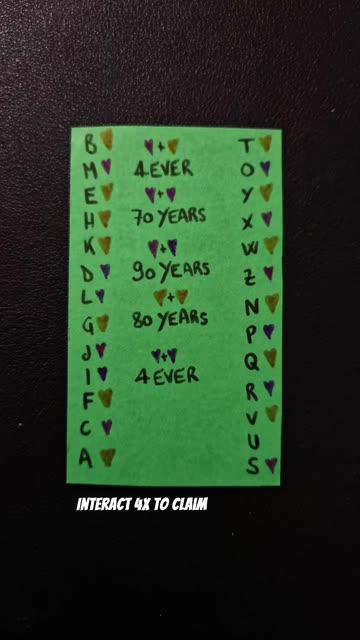 B
M
E
H
K
D
L
G
J
I
F
C
A
+
4EVER
+
70 YEARS
+
90 YEARS
+
80 YEARS
+
4EVER
T
O
Y
X
W
Z
N
P
Q
R
V
U
S
INTERACT 4X TO CLAIM